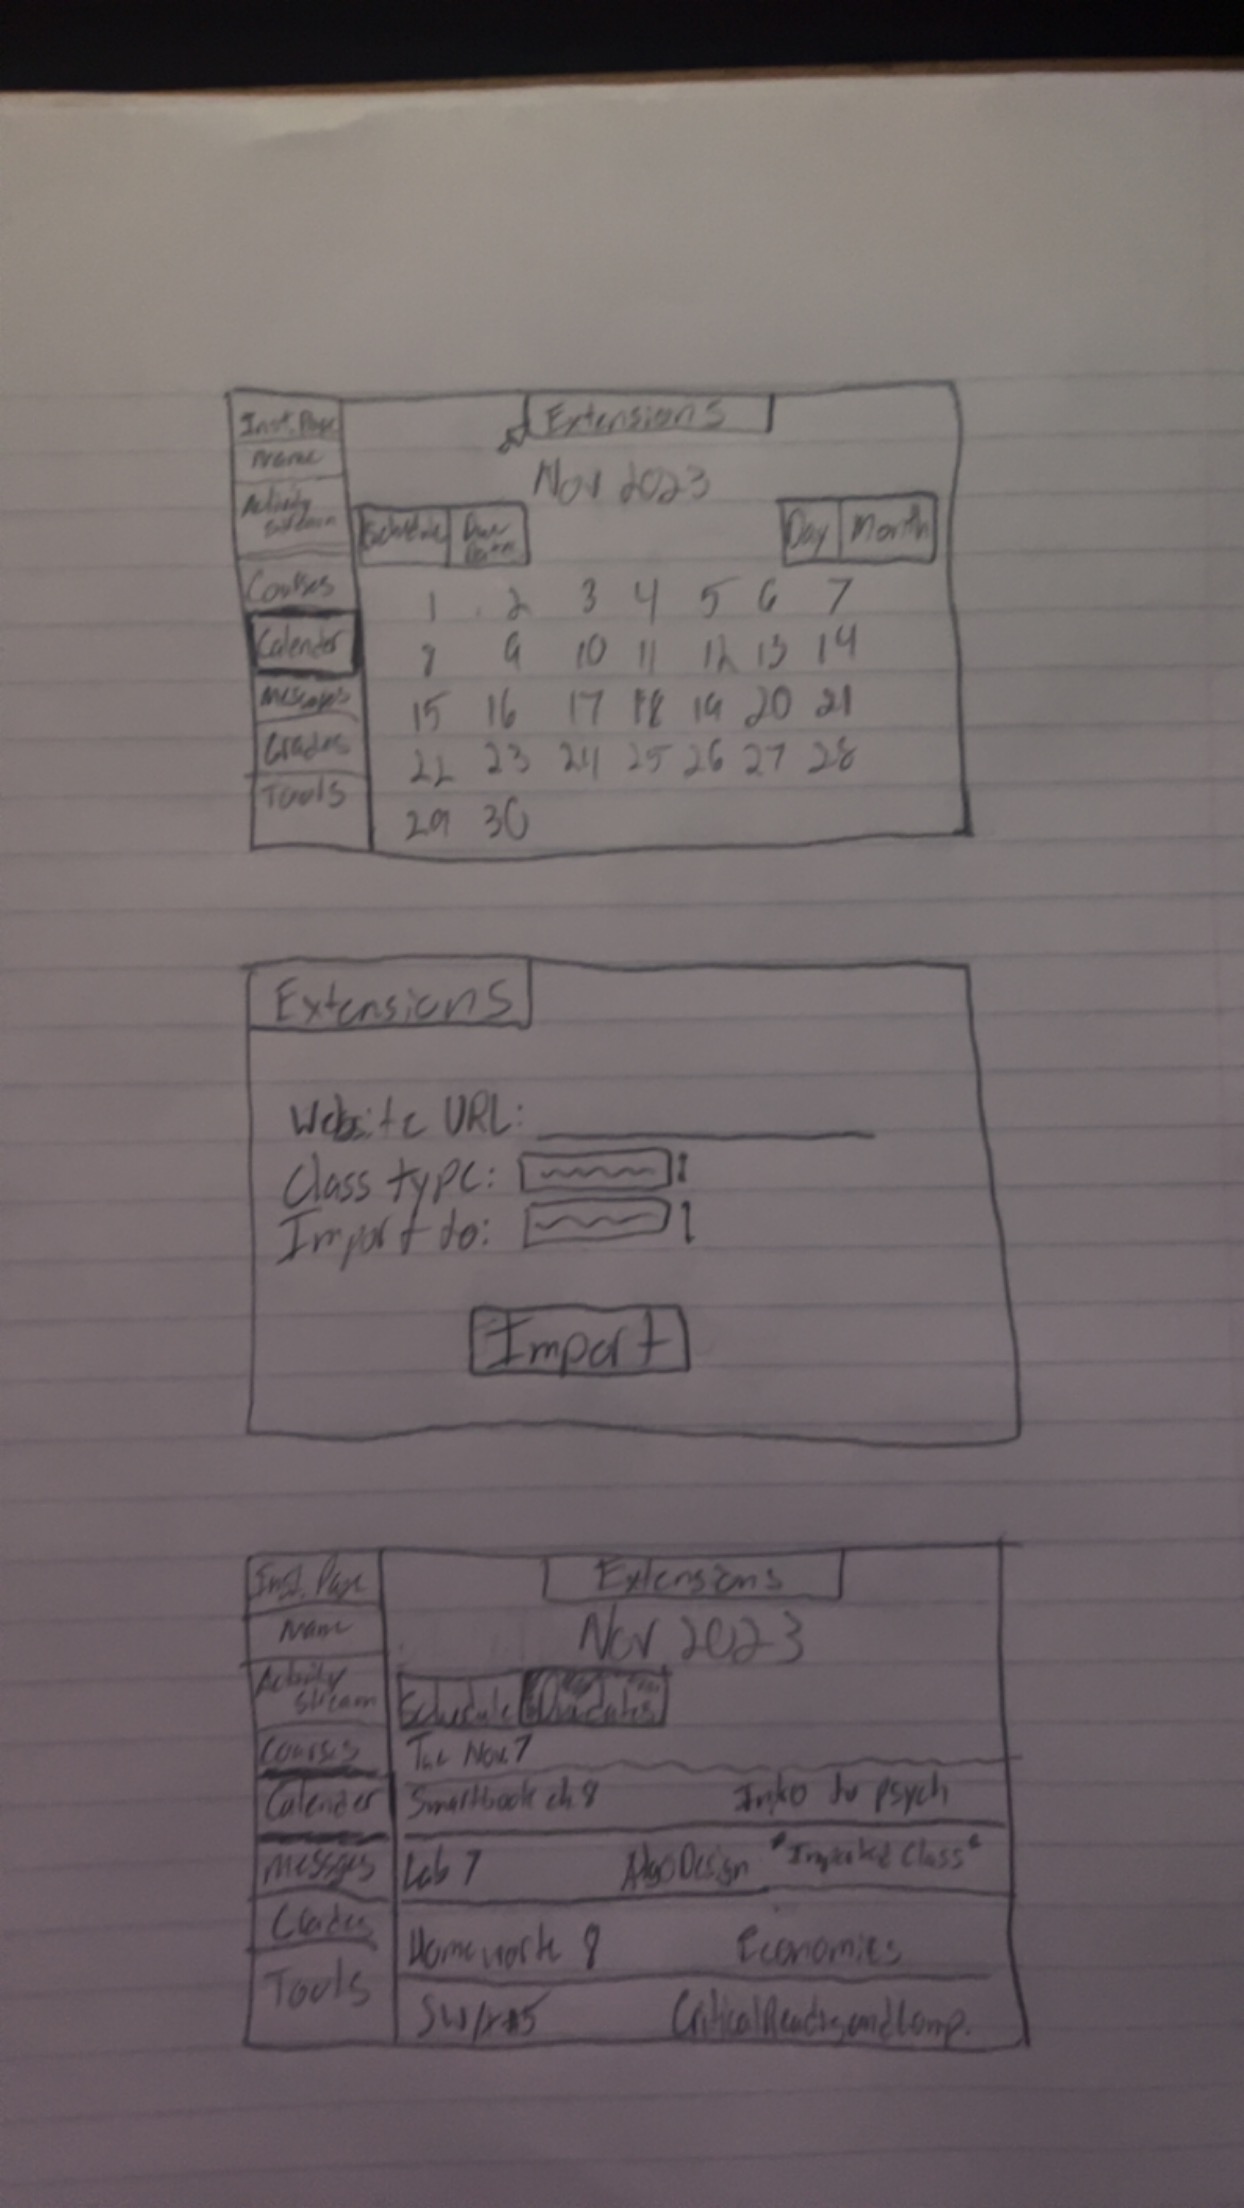 Inst. Page
Name
Activity
Stream
Courses
Calender
Messages
Grades
Tools
Extensions
Nov 2023
Schedule Due
Day Month
1 2 3 4 5 6 7
8 9 10 11 12 13 14
15 16 17 18 19 20 21
22 23 24 25 26 27 28
29 30
Extensions
Website URL:
Class type:
Import to:
Import
Inst. Page
Name
Activity
Stream
Courses
Calender
Messges
Grades
Tools
Extensions
Nov 2023
Schedule Due dates
Tue Nov 7
Smartbook ch 8 Intro to psych
Lab 7 Algo Design "Imported Class"
Homework 8 Economics
Critical Reading and Comp.